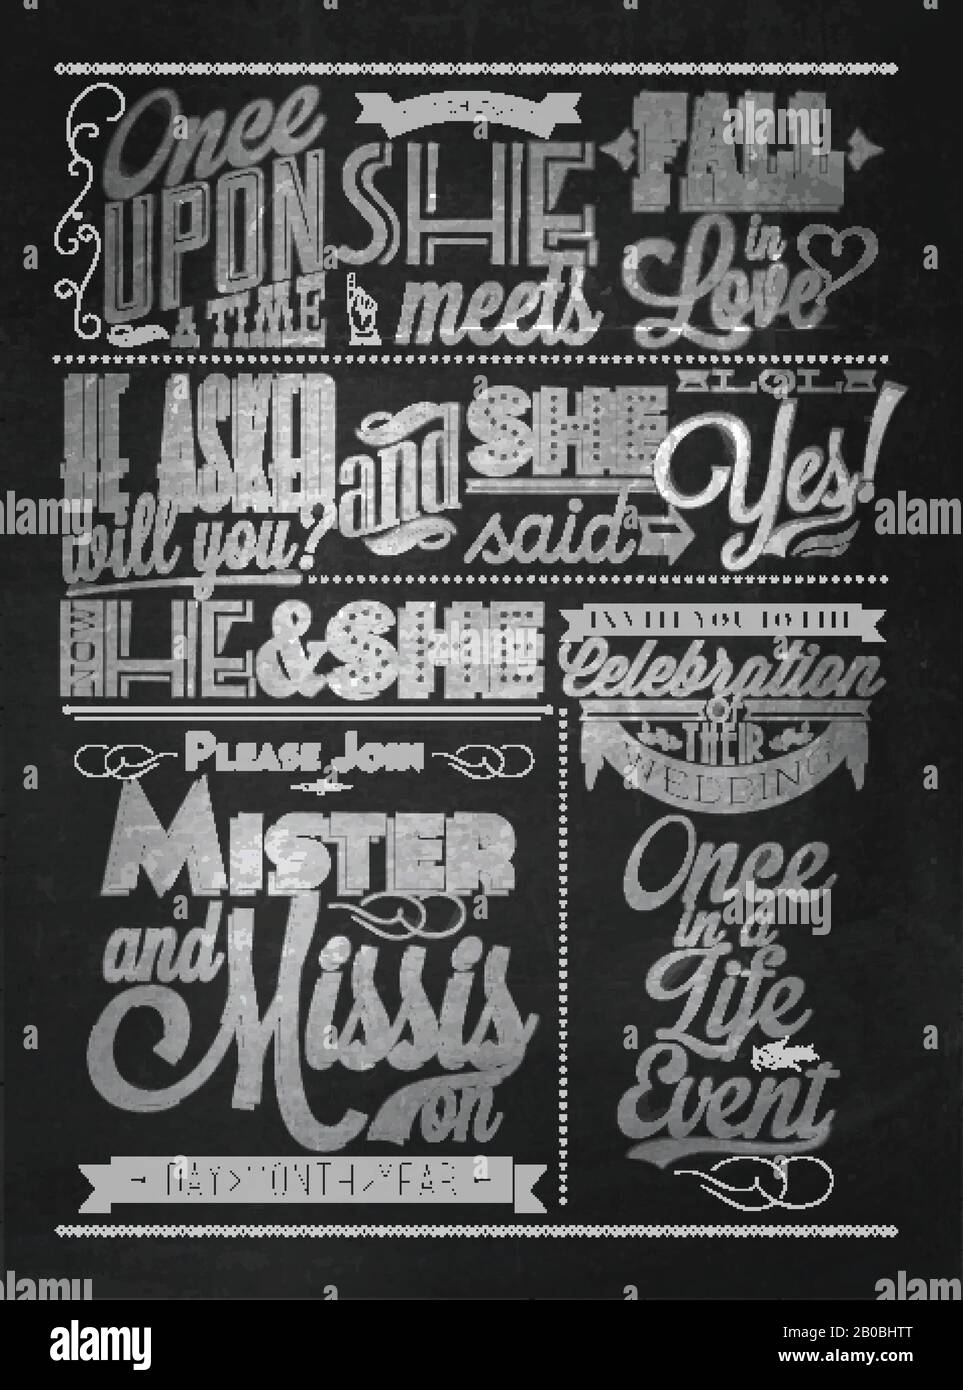 Once
UPON
A TIME
SHE
meets
FALL
in
Love
HE ASKED
will you?
and
SHE
said
Yes!
NOW
HE & SHE
INVITE YOU TO THE
Celebration
OF
THEIR
WEDDING
PLEASE JOIN
MISTER
and
Missis
on
DAY>MONTH>YEAR
Once
in a
Life
Event
alamy
Image ID: 2B0BHTT
www.alamy.com